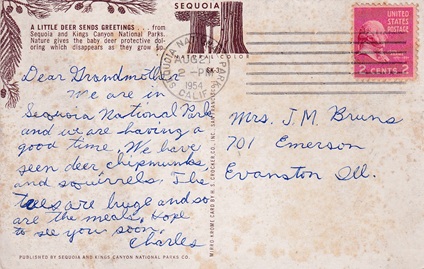 SEQUOIA
NATURAL COLOR
A LITTLE DEER SENDS GREETINGS . . from
Sequoia and Kings Canyon National Parks.
Nature gives the baby deer protective col-
oring which disappears as they grow up.
SEQUOIA NATIONAL PARK
2 PM
1954
CALIF.
UNITED STATES POSTAGE
2 CENTS 2
Dear Grandmother
We are in
Sequoia National Park
and we are having a
good time. We have
seen deer chipmunks,
and squirrels. The
trees are huge and so
are the meals. Hope
to see you soon.
Charles
Mrs. J. M. Bruns
701 Emerson
Evanston Ill.
MIRRO-KROME CARD BY H. S. CROCKER CO., INC.
PUBLISHED BY SEQUOIA AND KINGS CANYON NATIONAL PARKS CO.